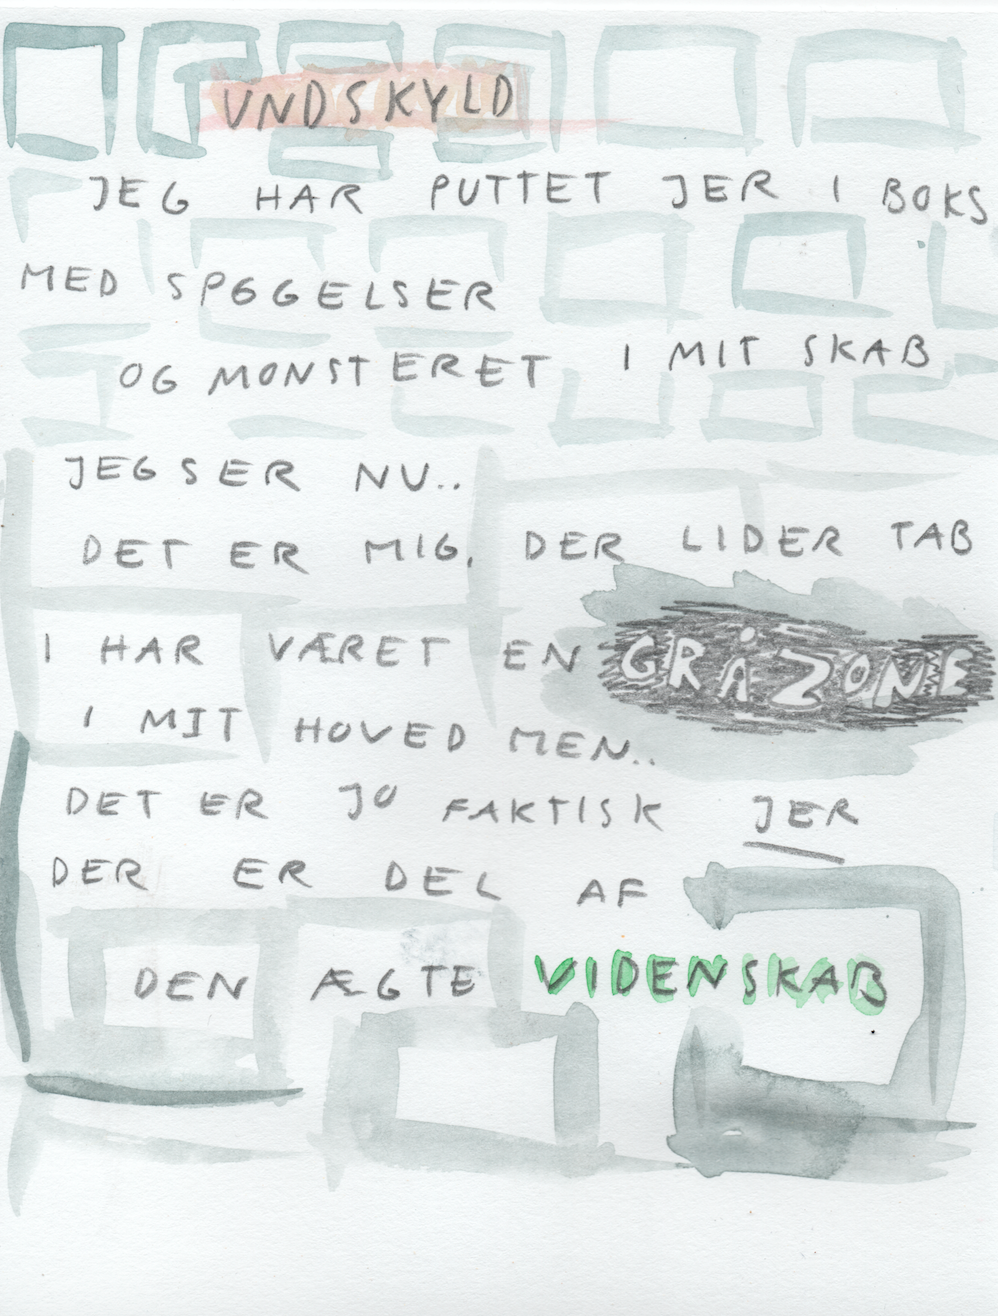 UNDSKYLD
JEG HAR PUTTET JER I BOKS
MED SPØGELSER
OG MONSTERET I MIT SKAB
JEG SER NU..
DET ER MIG, DER LIDER TAB
I HAR VÆRET EN GRÅZONE
I MIT HOVED MEN..
DET ER JO FAKTISK JER
DER ER DEL AF
DEN ÆGTE VIDENSKAB